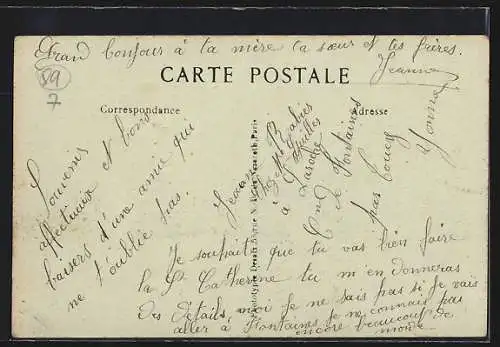 Grand bonjour à ta mère ta sœur et tes frères.
Jeanne
89
7
CARTE POSTALE
Correspondance
Adresse
Souvenirs
affectueux et bons
baisers d'une amie qui
ne t'oublie pas.
Jeanne
à Laroche
Cne de Fontaines
par Toucy
Yonne
Je souhaite que tu vas bien faire
la Ste Catherine tu m'en donneras
des détails, moi je ne sais pas si je vais
aller à Fontaines je ne connais pas
encore beaucoup de
monde.